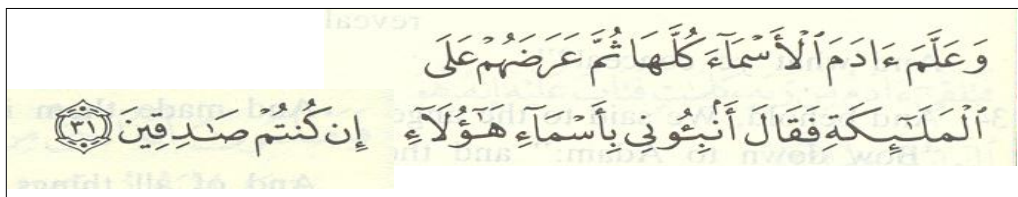 وَعَلَّمَ ءَادَمَ ٱلْأَسْمَآءَ كُلَّهَا ثُمَّ عَرَضَهُمْ عَلَى
ٱلْمَلَـٰٓئِكَةِ فَقَالَ أَنۢبِـُٔونِى بِأَسْمَآءِ هَـٰٓؤُلَآءِ إِن كُنتُمْ صَـٰدِقِينَ ﴿٣١﴾